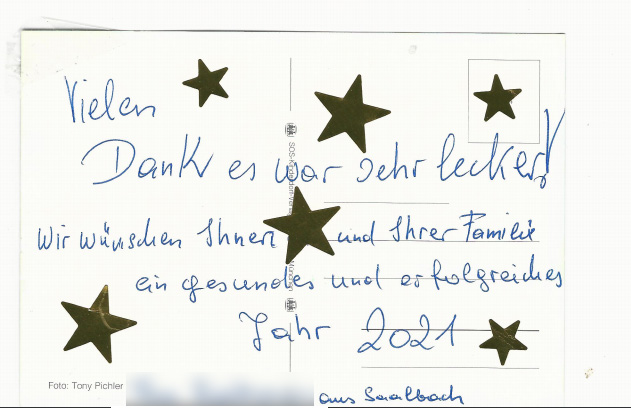 Vielen
Dank es war sehr lecker!
Wir wünschen Ihnen und Ihrer Familie
ein gesundes und erfolgreiches
Jahr 2021
Foto: Tony Pichler
aus Saalbach